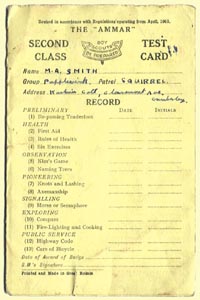 Revised in accordance with Regulations operating from April, 1953.
THE "AMMAR"
SECOND CLASS
BOY SCOUTS
BE PREPARED
TEST CARD
Name M.A. SMITH
Group Patrol SQUIRREL
Address
RECORD
PRELIMINARY Date Initials
(1) Re-passing Tenderfoot
HEALTH
(2) First Aid
(3) Rules of Health
(4) Six Exercises
OBSERVATION
(5) Kim's Game
(6) Naming Trees
PIONEERING
(7) Knots and Lashing
(8) Axemanship
SIGNALLING
(9) Morse or Semaphore
EXPLORING
(10) Compass
(11) Fire-Lighting and Cooking
PUBLIC SERVICE
(12) Highway Code
(13) Care of Bicycle
Date of Award of Badge
S.M's Signature
Printed and Made in Great Britain